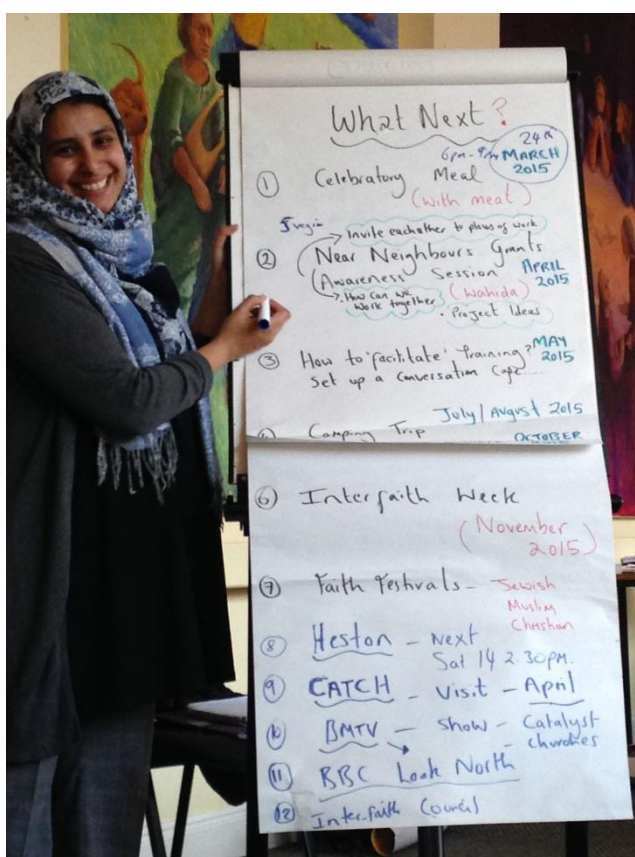 What Next?
6pm - 9pm
24th
MARCH
2015
① Celebratory Meal
(with meat)
Invite eachother to places of work
② Near Neighbours Grants
Awareness Session
APRIL
2015
How can we
work together
(Wahida)
• Project Ideas
③ How to 'facilitate' Training?
MAY
2015
Set up a conversation
July/August 2015
Camping Trip
OCTOBER
⑥ Interfaith Week
(November
2015)
⑦ Faith Festivals - Jewish
Muslim
Christian
⑧ Heston - Next
Sat 14 2.30PM.
⑨ CATCH - Visit - April
⑩ BMTV - Show - Catalyst
- Churches
⑪ BBC Look North
⑫ Interfaith Council